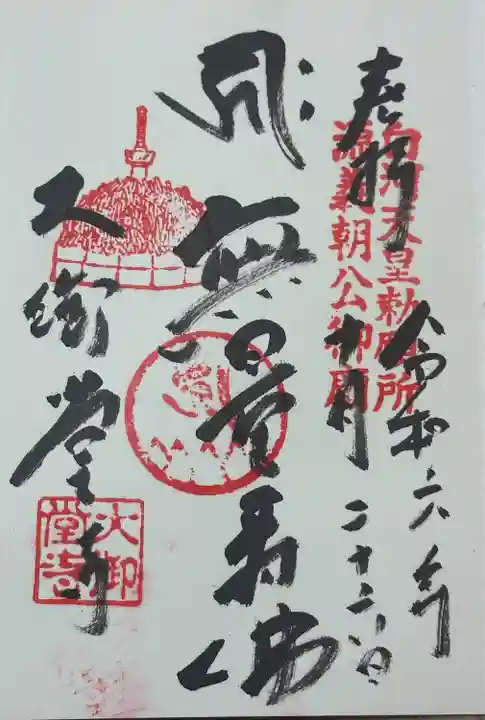 奉拝
白河天皇勅願所
源義朝公御廟
令和六年
十月二十六日
無量寿佛
大御堂寺
大御
堂寺